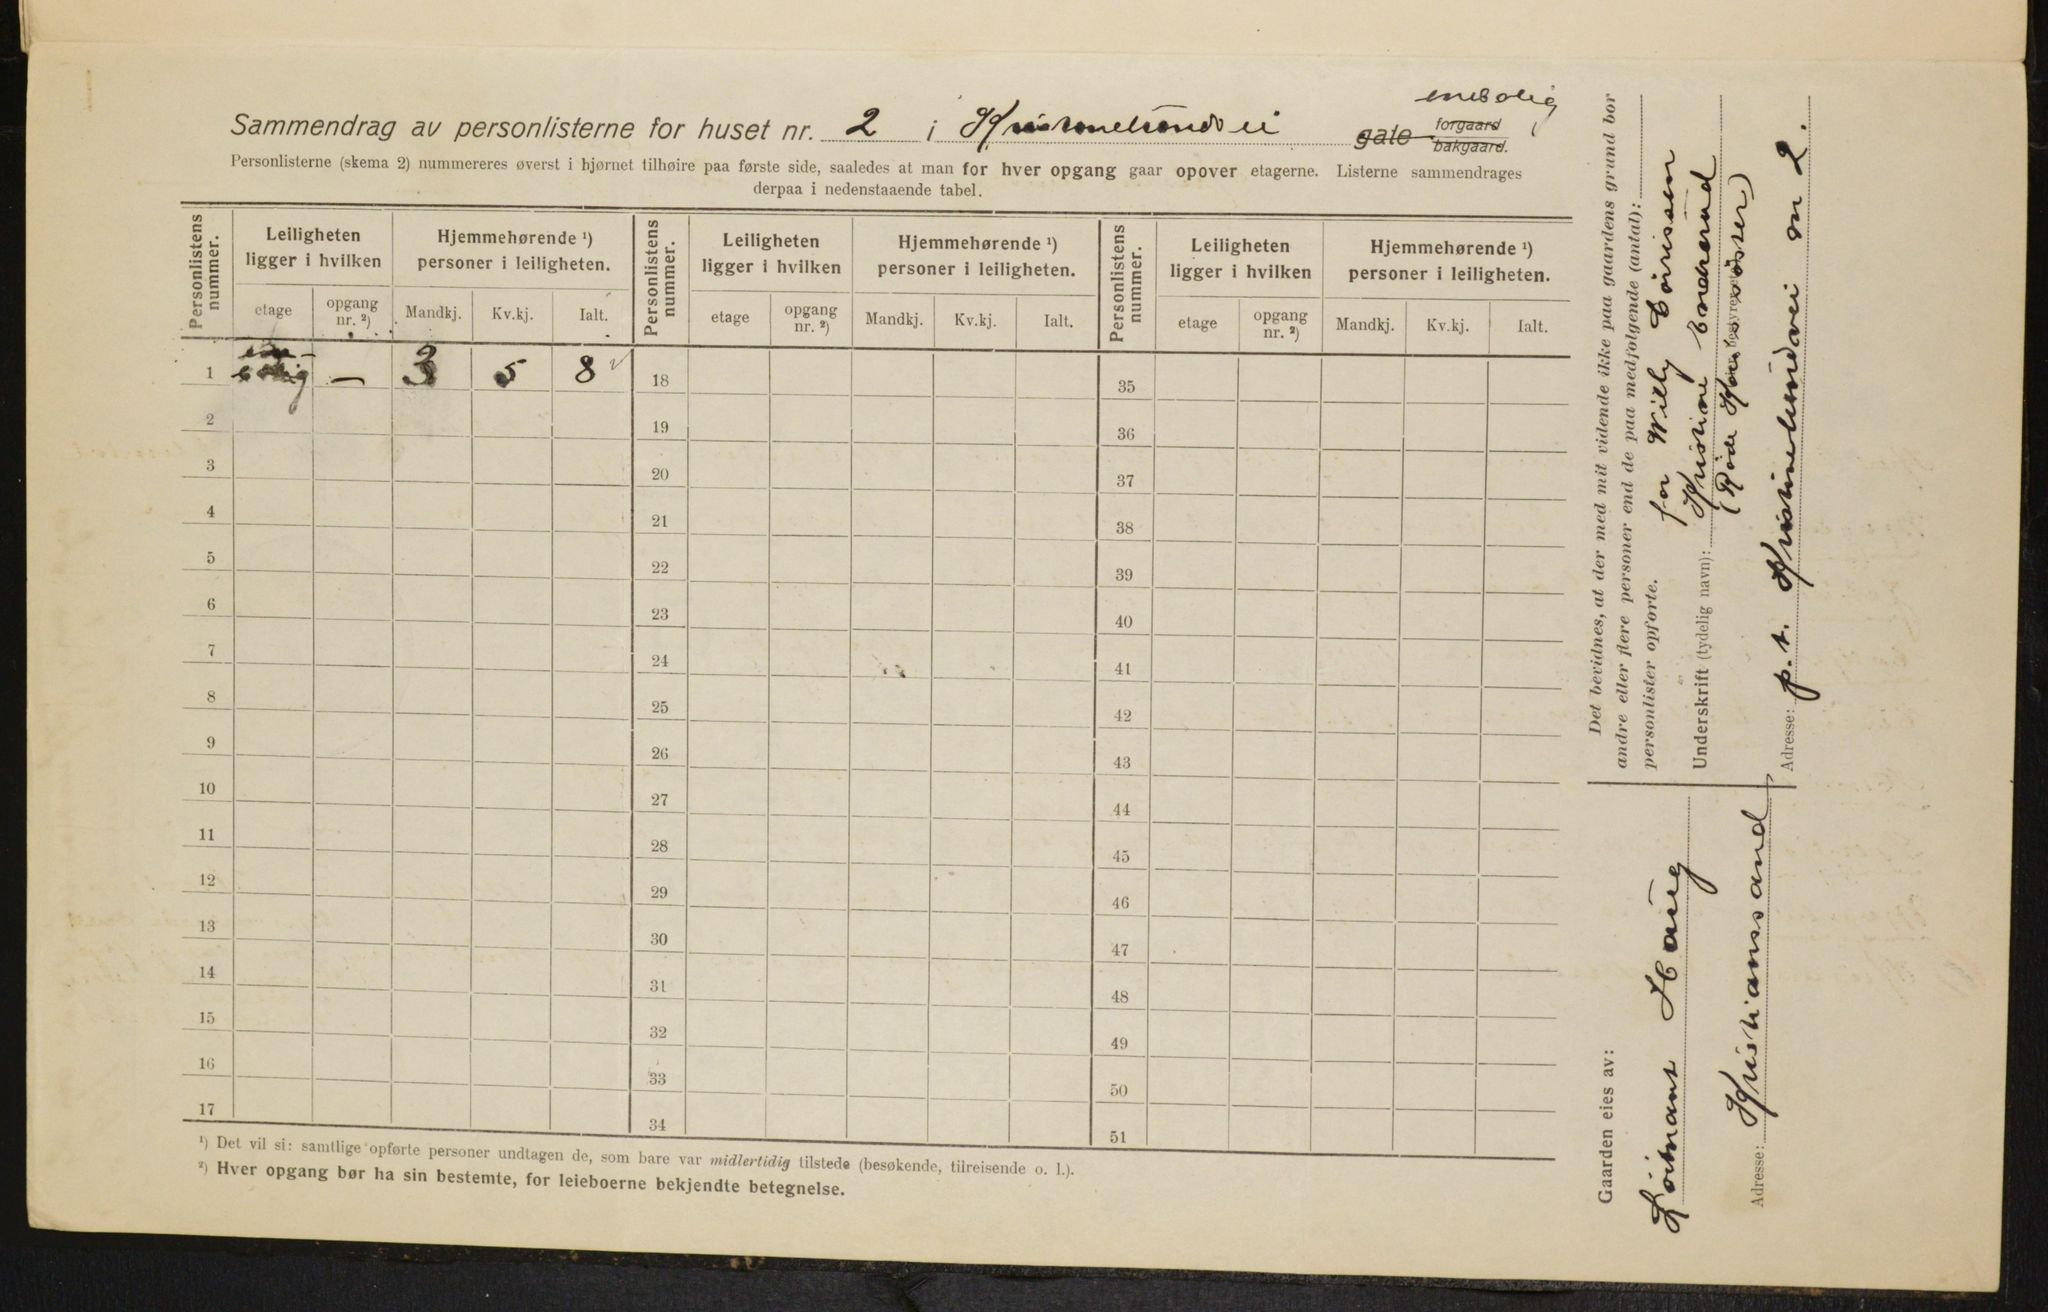 enebolig
Sammendrag av personlisterne for huset nr. 2 i Kristinelundvei gate forgaard bakgaard.
Personlisterne (skema 2) nummereres øverst i hjørnet tilhøire paa første side, saaledes at man for hver opgang gaar opover etagerne. Listerne sammendrages
derpaa i nedenstaaende tabel.
Personlistens nummer. Leiligheten ligger i hvilken Hjemmehørende ¹) personer i leiligheten. Personlistens nummer. Leiligheten ligger i hvilken Hjemmehørende ¹) personer i leiligheten. Personlistens nummer. Leiligheten ligger i hvilken Hjemmehørende ¹) personer i leiligheten.
etage opgang nr. ²) Mandkj. Kv.kj. Ialt. etage opgang nr. ²) Mandkj. Kv.kj. Ialt. etage opgang nr. ²) Mandkj. Kv.kj. Ialt.
1 ene-bolig — 3 5 8 18 35
2 19 36
3 20 37
4 21 38
5 22 39
6 23 40
7 24 41
8 25 42
9 26 43
10 27 44
11 28 45
12 29 46
13 30 47
14 31 48
15 32 49
16 33 50
17 34 51
¹) Det vil si: samtlige opførte personer undtagen de, som bare var midlertidig tilstede (besøkende, tilreisende o. l.).
²) Hver opgang bør ha sin bestemte, for leieboerne bekjendte betegnelse.
Det bevidnes, at der med mit vidende ikke paa gaardens grund bor
andre eller flere personer end de paa medfølgende (antal):
personlister opførte.
for Willy
Underskrift (tydelig navn): Kristine
(Røde Kors søster)
bestyrer
Adresse: p.t. Kristinelundvei no 2.
Gaarden eies av:
Løitnant Haug
Adresse: Kristianssand